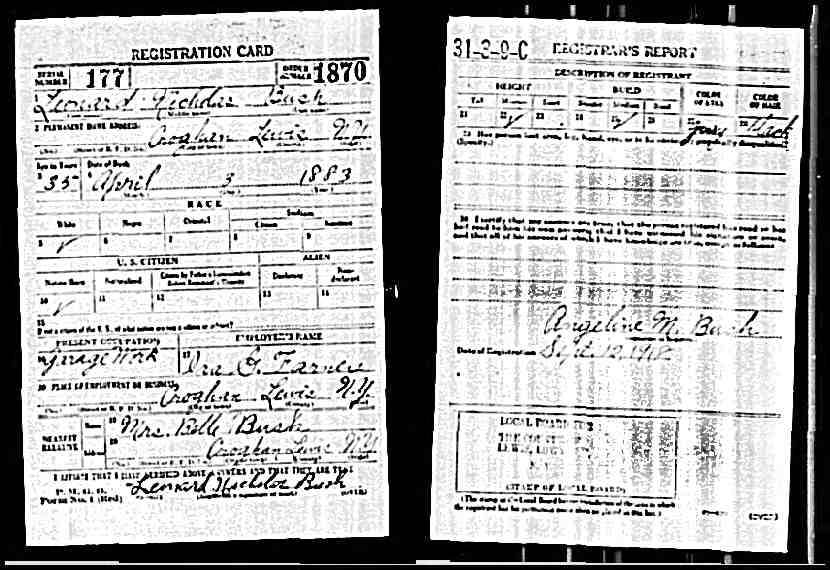 REGISTRATION CARD
SERIAL NUMBER 177 ORDER NUMBER 1870
1 Leonard Nicholas Bush
2 PERMANENT HOME ADDRESS:
Croghan Lewis N.Y.
Age in Years Date of Birth
35 April 3 1883
RACE
White Negro Oriental Indian
Citizen
5 ✓ 6 7 8 9
U. S. CITIZEN ALIEN
Native Born Naturalized Citizen by Father's Naturalization Before Registrant's Majority Declarant Non-declarant
10 ✓ 11 12 13 14
15
If not a citizen of the U. S., of what nation are you a citizen or subject?
PRESENT OCCUPATION EMPLOYER'S NAME
Garage Work 17
PLACE OF EMPLOYMENT OR BUSINESS
Croghan Lewis N.Y.
NEAREST RELATIVE Name 19 Mrs. Belle Bush
Address 20 Croghan Lewis N.Y.
I AFFIRM THAT I HAVE VERIFIED ABOVE ANSWERS AND THAT THEY ARE TRUE
P. M. G. O.
Form No. 1 (Red) Leonard Nicholas Bush (OVER)
31-3-9-C REGISTRAR'S REPORT
DESCRIPTION OF REGISTRANT
HEIGHT BUILD COLOR OF EYES COLOR OF HAIR
Tall Medium Short Slender Medium Stout
21 22 ✓ 23 24 25 ✓ 26 27 Grey 28 Black
29 Has person lost arm, leg, hand, eye,
(Specify.)
30 I certify that my answers are true; that the person registered has read or has
had read to him his own answers; that I have witnessed his signature or mark,
and that all of his answers of which I have knowledge are true, except as follows:
Angeline M. Bush
Date of Registration Sept. 12, 1918
LOCAL BOARD FOR
THE COUNTY OF
LEWIS,
N.Y.
(STAMP OF LOCAL BOARD)
(The stamp of the Local Board having jurisdiction of the area in which
the registrant has his permanent home shall be placed in this box.)
(OVER)